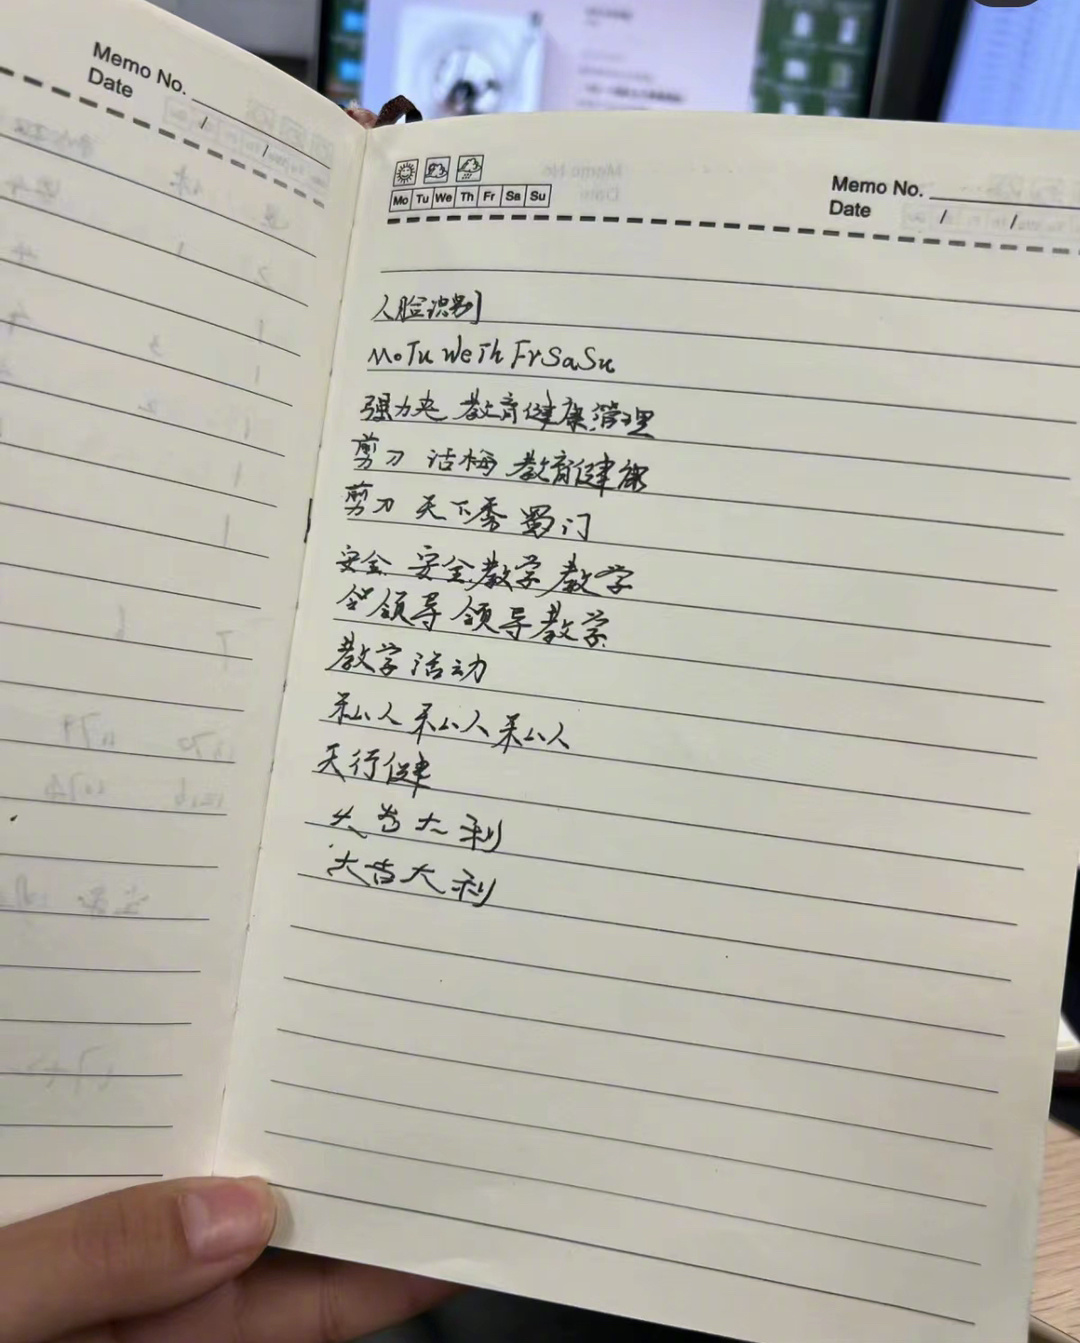 Memo No.
Date / /
Mo Tu We Th Fr Sa Su
Memo No.
Date / /
人脸识别
MoTuWeTh FrSaSu
强力夹 教育健康管理
剪刀 话梅 教育健康
剪刀 天下秀 蜀门
安全 安全教学 教学
领导 领导教学
教学活动
天行健
大吉大利
大吉大利